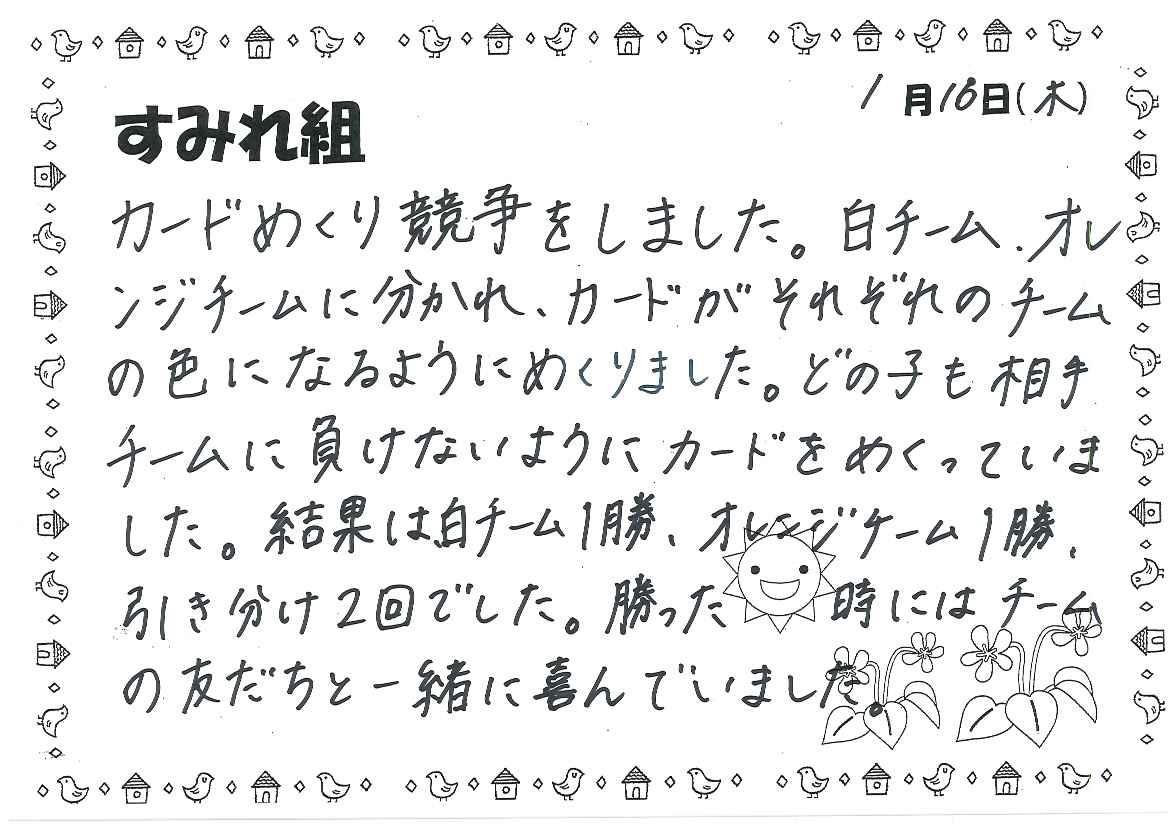 1月16日(木)
すみれ組
カードめくり競争をしました。白チーム、オレ
ンジチームに分かれ、カードがそれぞれのチーム
の色になるようにめくりました。どの子も相手
チームに負けないようにカードをめくっていま
した。結果は白チーム1勝、オレンジチーム1勝、
引き分け2回でした。勝った時にはチーム
の友だちと一緒に喜んでいました。